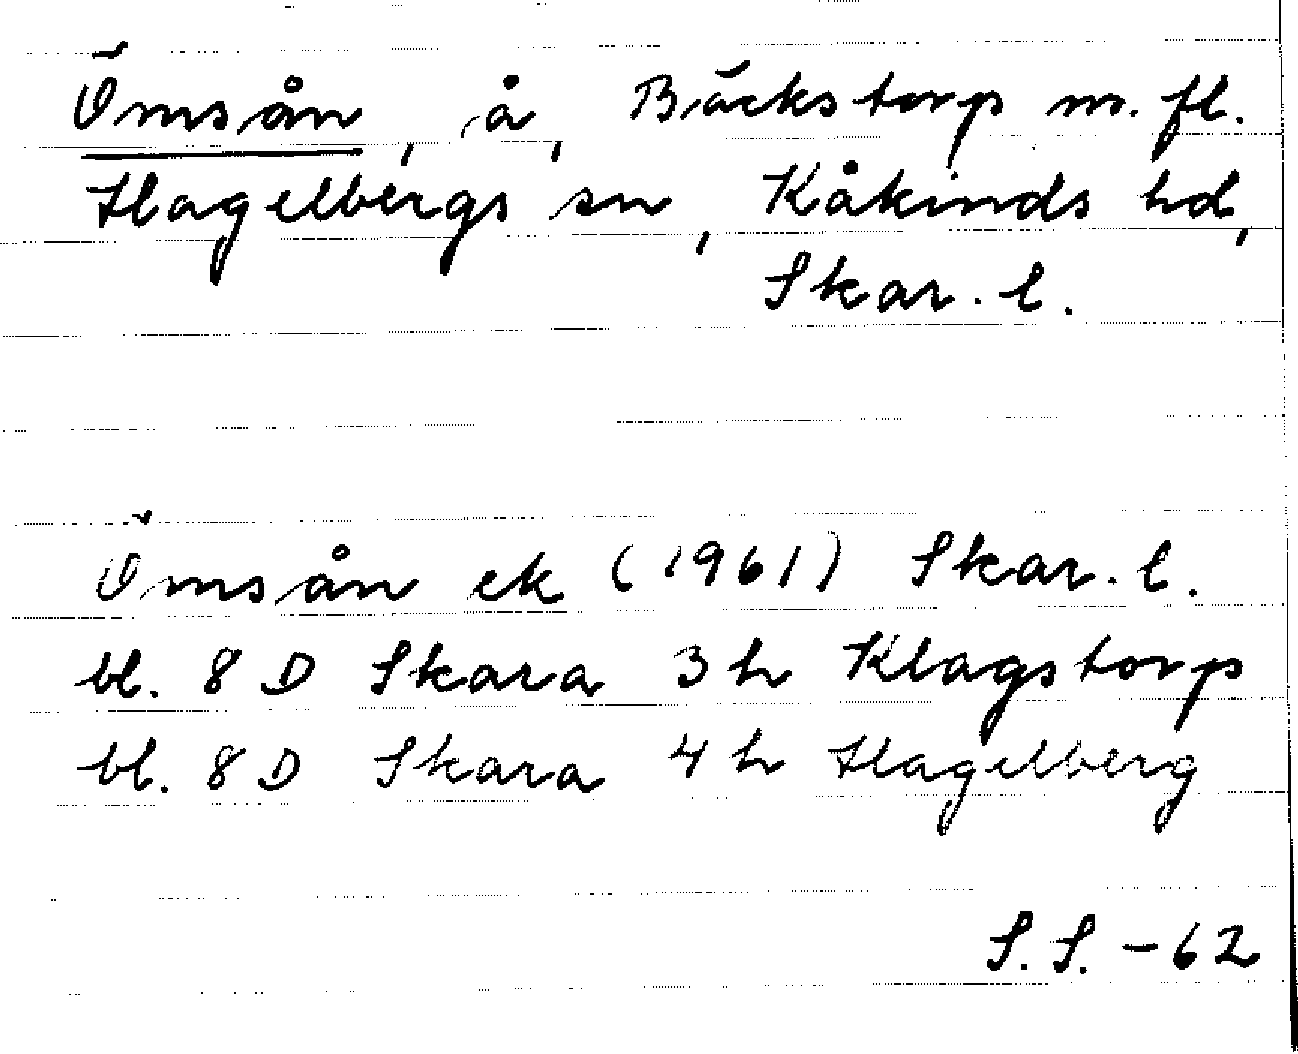 Ömsån, å, Bäckstorp m. fl.
Hagelbergs sn, Kåkinds hd,
Skar. l.
Ömsån ek (1961) Skar. l.
bl. 8 D Skara 3 h Klagstorp
bl. 8 D Skara 4 h Hagelberg
S. S. - 62